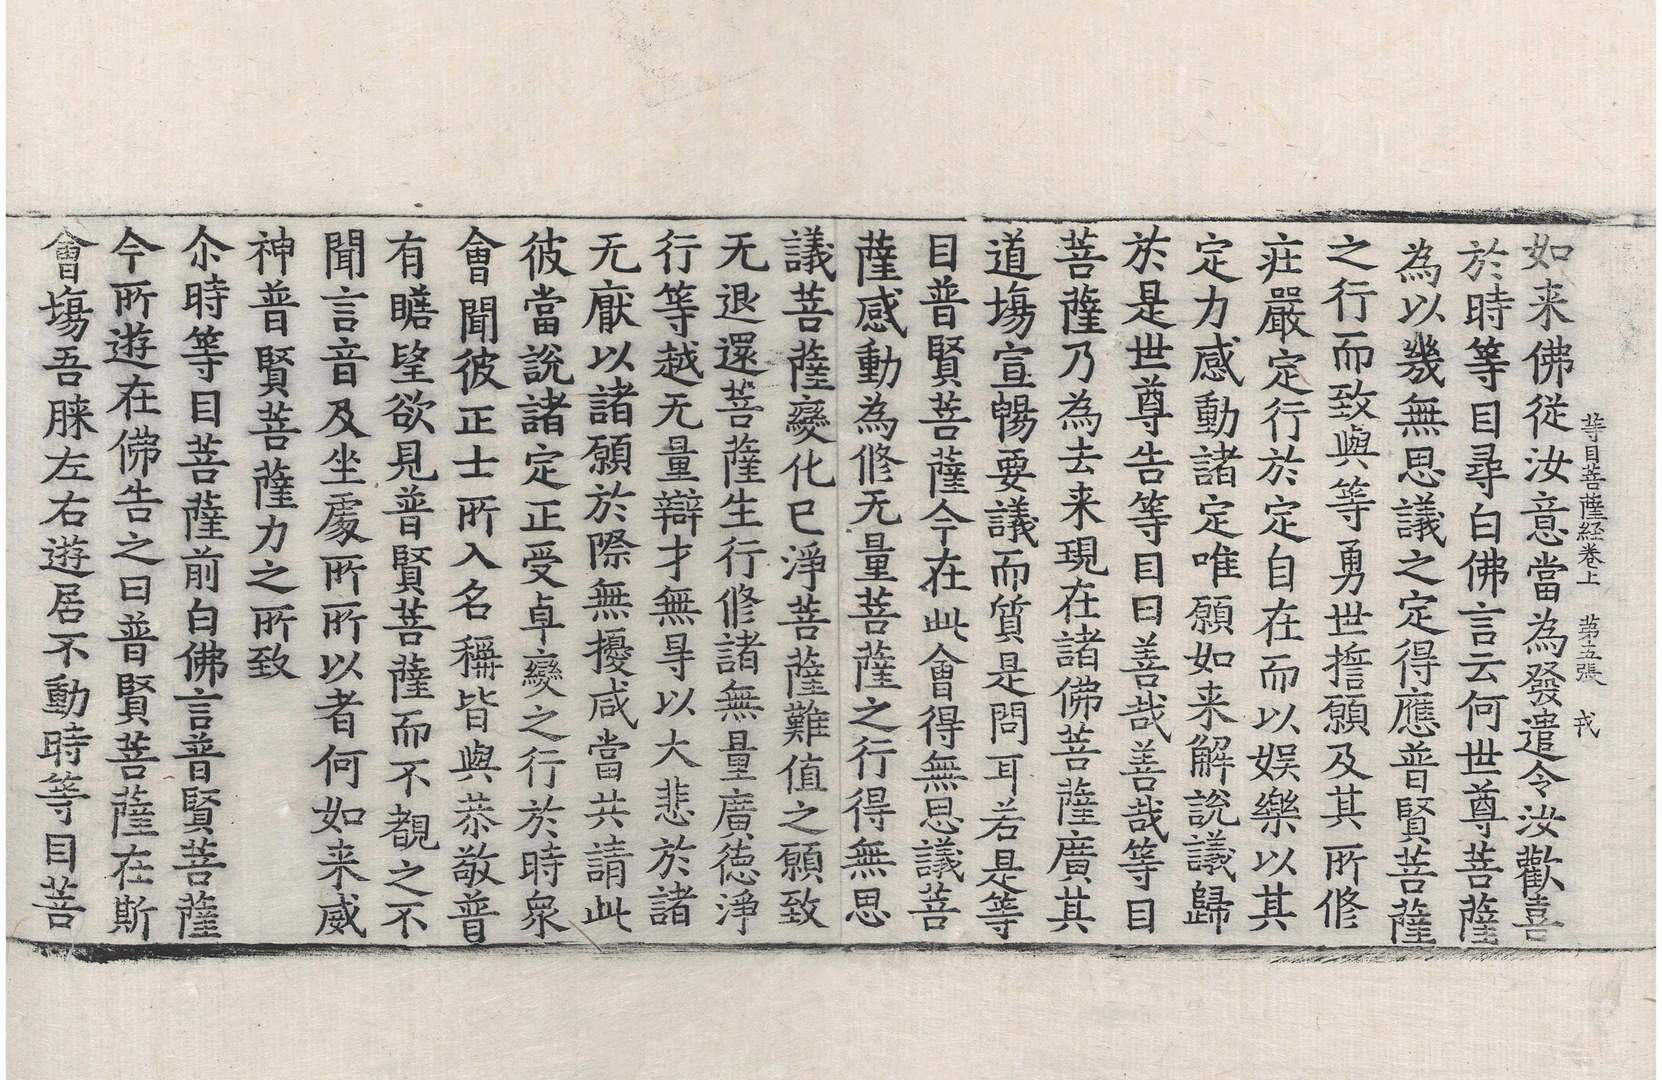 等目菩薩経卷上　第五張　戎
如来佛從汝意當為發遣令汝歡喜
於時等目尋白佛言云何世尊菩薩
為以幾無思議之定得應普賢菩薩
之行而致與等勇世擔願及其所修
庄嚴定行於定自在而以娛樂以其
定力感動諸定唯願如来解說議歸
於是世尊告等目曰善哉善哉等目
菩薩乃為去来現在諸佛菩薩廣其
道場宣暢要議而質是問耳若是等
目普賢菩薩今在此會得無思議菩
薩感動為修无量菩薩之行得無思
議菩薩變化已淨菩薩難值之願致
无退還菩薩生行修諸無量廣德淨
行等越无量辯才無㝵以大悲於諸
无厭以諸願於際無擾咸當共請此
彼當說諸定正受卓變之行於時衆
會聞彼正士所入名稱皆與恭敬普
有瞻望欲見普賢菩薩而不覩之不
聞言音及坐處所所以者何如来威
神普賢菩薩力之所致
尒時等目菩薩前白佛言普賢菩薩
今所遊在佛告之曰普賢菩薩在斯
會場吾睞左右遊居不動時等目菩